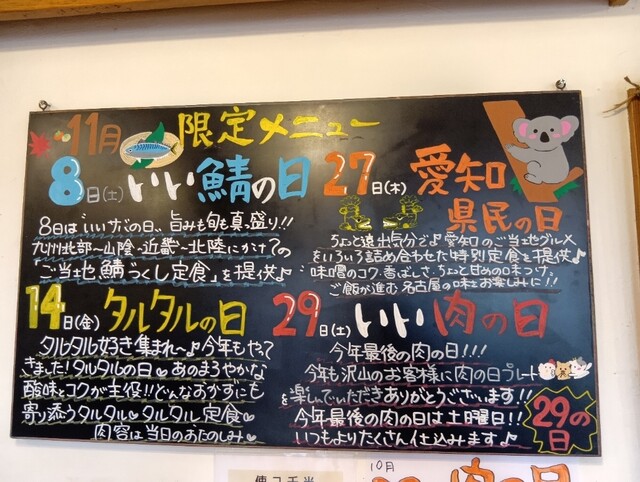 11月 限定メニュー
8日(土) いい鯖の日
8日は"いいサバの日"、旨みも旬も真っ盛り!!
九州北部〜山陰〜近畿〜北陸にかけての
「ご当地鯖づくし定食」を提供♪
27日(木) 愛知県民の日
ちょっと遠出気分で♪愛知のご当地グルメ
をいろいろ詰め合わせた特別定食を提供♪
味噌のコク、香ばしさ、ちょっと甘めの味つけ。
ご飯が進む名古屋の味をお楽しみに!!
14日(金) タルタルの日
タルタル好き集まれ〜♪今年もやって
きました!タルタルの日♥あのまろやかな
酸味とコクが主役!!どんなおかずにも
寄り添うタルタル♥タルタル定食♥
内容は当日のおたのしみ♥
29日(土) いい肉の日
今年最後の肉の日!!!
今年も沢山のお客様に肉の日プレート
を楽しんでいただきありがとうございます!!
今年最後の肉の日は土曜日!!
いつもよりたくさん仕込みます♪
29の日
10月
肉の日